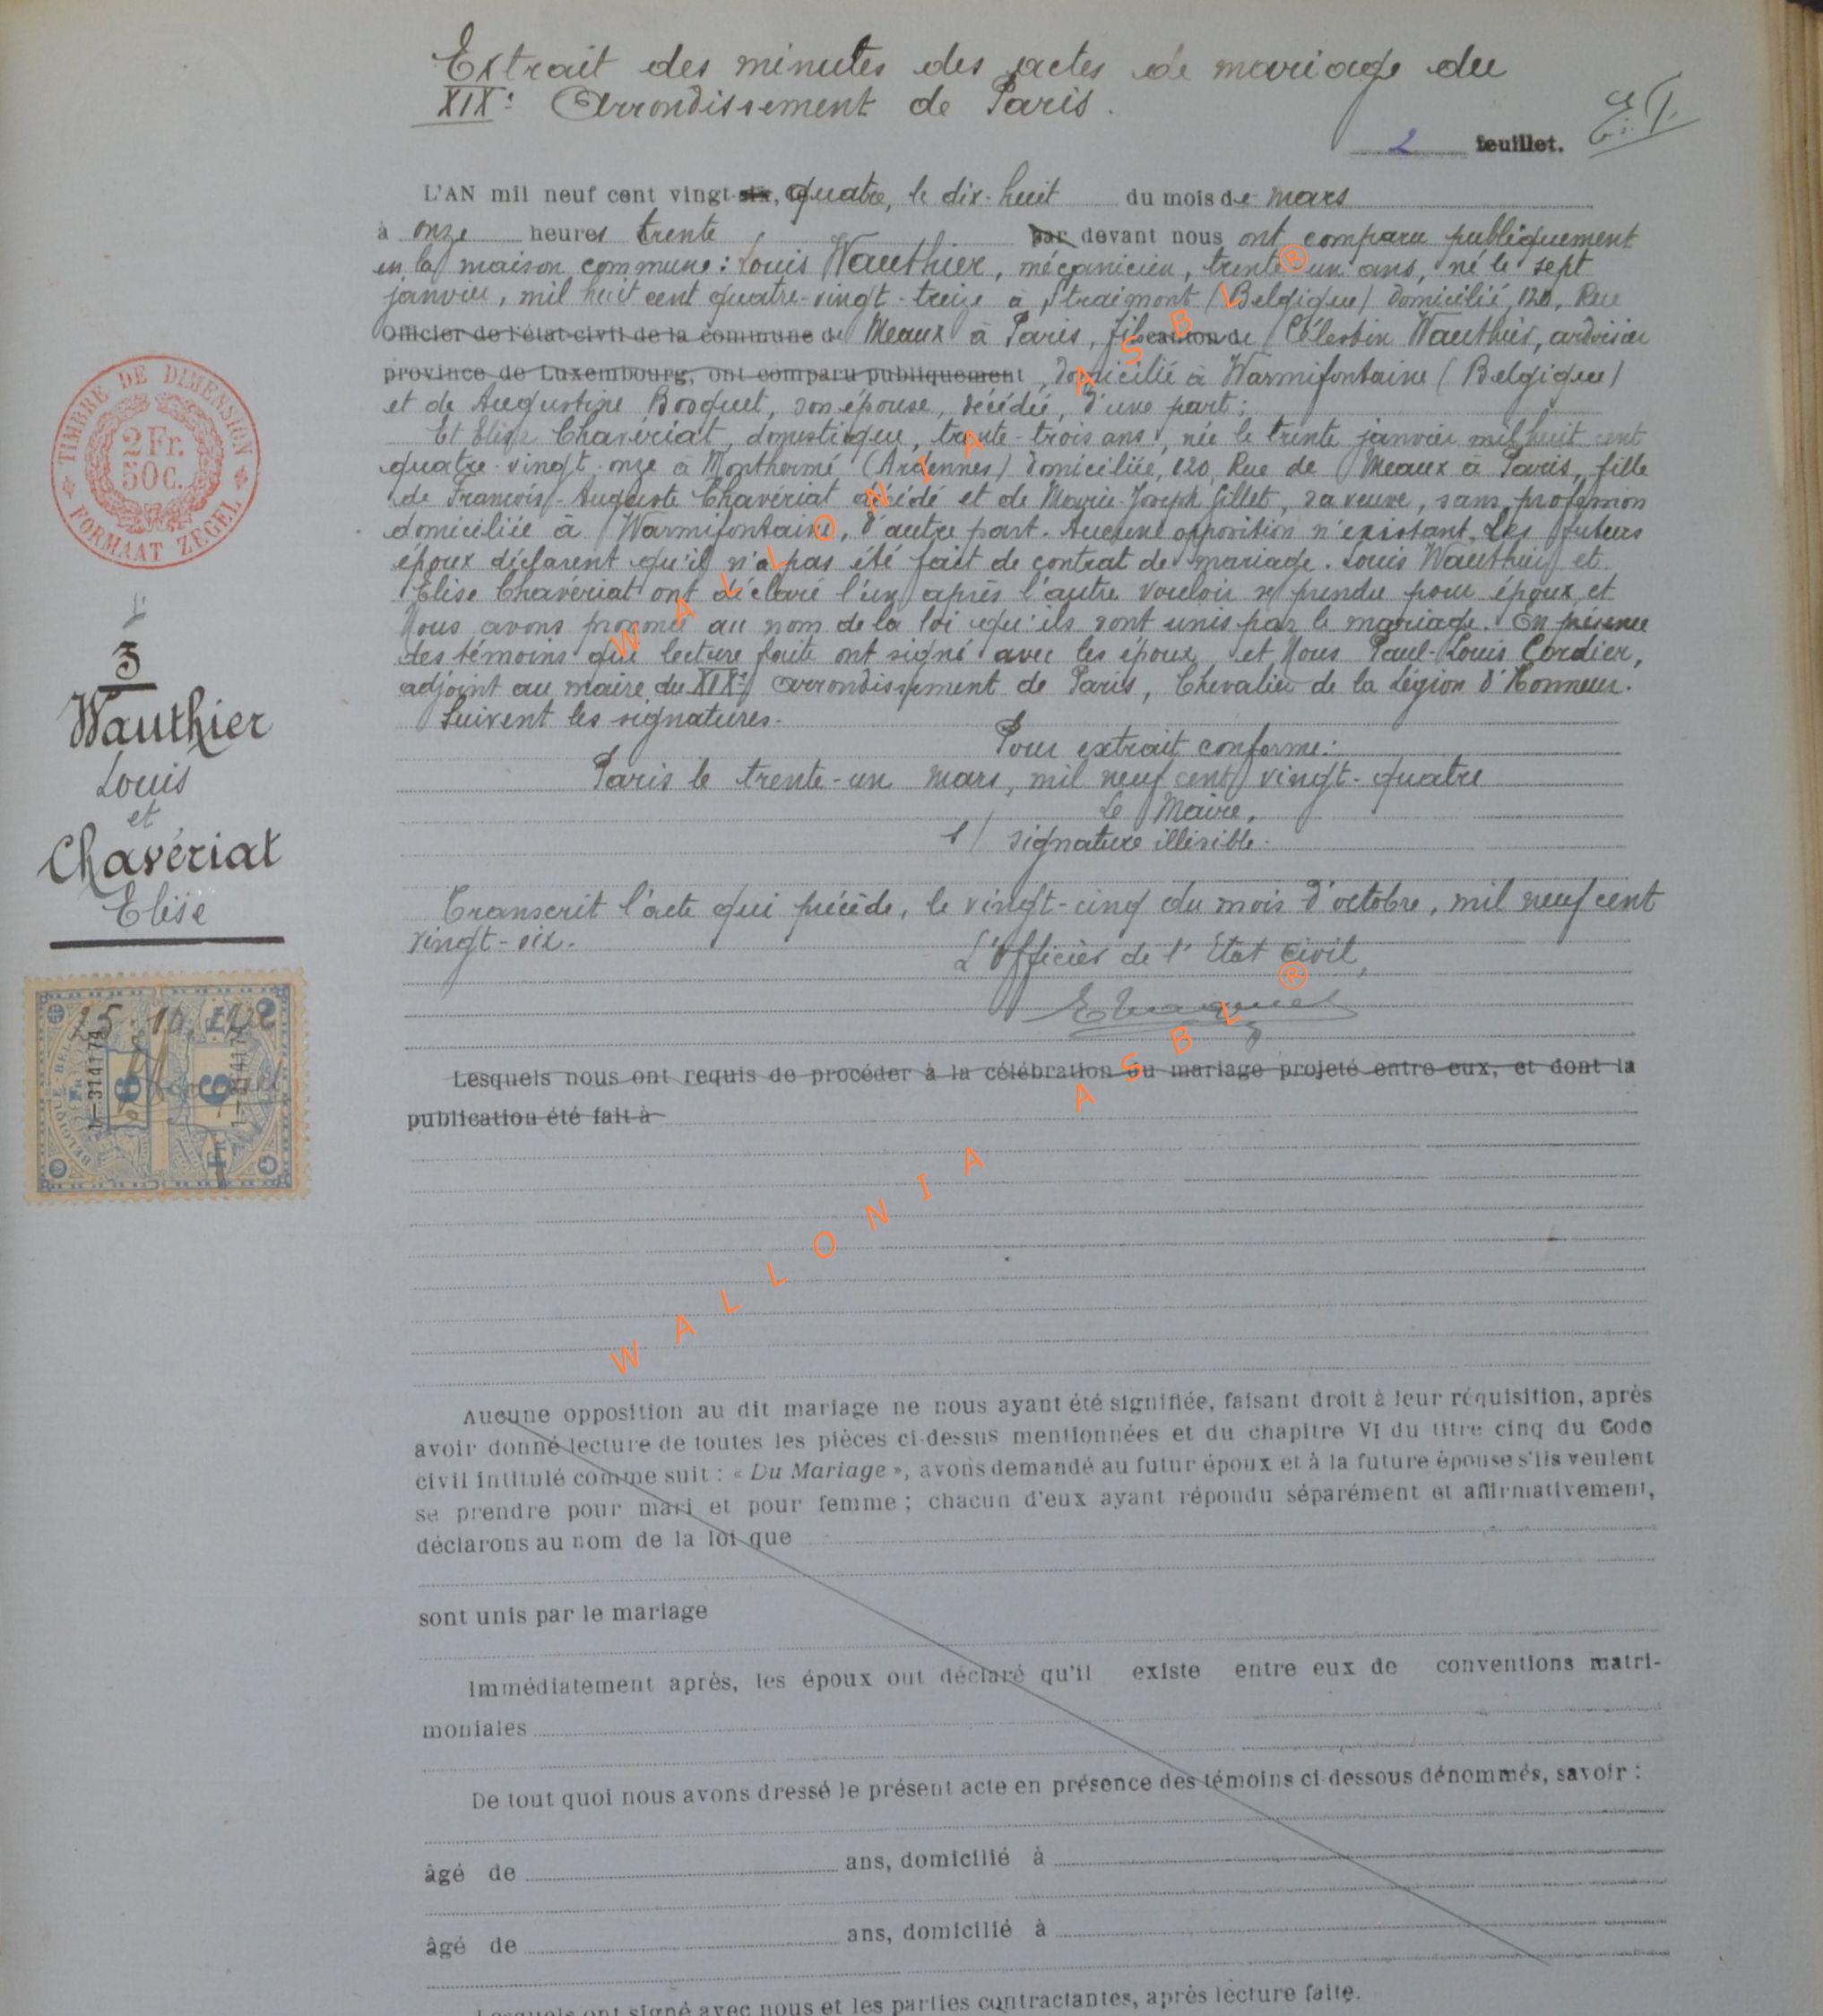 Extrait des minutes des actes de mariage du
XIXe Arrondissement de Paris.
2 feuillet.
L'AN mil neuf cent vingt-six, quatre, le dix-huit du mois de mars
à onze heures trente par devant nous ont comparu publiquement
en la maison commune : Louis Wauthier, mécanicien, trente un ans, né le sept
janvier, mil huit cent quatre-vingt-treize à Straimont (Belgique) domicilié, 120, Rue
Officier de l'état-civil de la commune de Meaux à Paris, fils de Célestin Wauthier, ardoisier
province de Luxembourg, ont comparu publiquement, domicilié à Warmifontaine (Belgique)
et de Augustine Bosquet, son épouse, décédée, d'une part ;
Et Elise Chavériat, domestique, trente-trois ans, née le trente janvier mil huit cent
quatre-vingt-onze à Monthermé (Ardennes) domiciliée, 120, Rue de Meaux à Paris, fille
de François-Auguste Chavériat décédé et de Marie-Joseph Gillet, sa veuve, sans profession
domiciliée à Warmifontaine, d'autre part. Aucune opposition n'existant. Les futurs
époux déclarent qu'il n'a pas été fait de contrat de mariage. Louis Wauthier et
Elise Chavériat ont déclaré l'un après l'autre vouloir se prendre pour époux et
Nous avons prononcé au nom de la loi qu'ils sont unis par le mariage. En présence
des témoins qui lecture faite ont signé avec les époux et Nous Paul-Louis Cordier,
adjoint au maire du XIXe arrondissement de Paris, Chevalier de la Légion d'Honneur.
Suivent les signatures.
Pour extrait conforme :
Paris le trente-un mars, mil neuf cent vingt-quatre
Le Maire,
s/ signature illisible.
Transcrit l'acte qui précède, le vingt-cinq du mois d'octobre, mil neuf cent
vingt-six.
L'Officier de l'Etat civil,
Lesquels nous ont requis de procéder à la célébration du mariage projeté entre eux, et dont la
publication été fait à
Aucune opposition au dit mariage ne nous ayant été signifiée, faisant droit à leur réquisition, après
avoir donné lecture de toutes les pièces ci-dessus mentionnées et du chapitre VI du titre cinq du Code
civil intitulé comme suit : « Du Mariage », avons demandé au futur époux et à la future épouse s'ils veulent
se prendre pour mari et pour femme ; chacun d'eux ayant répondu séparément et affirmativement,
déclarons au nom de la loi que
sont unis par le mariage
Immédiatement après, les époux ont déclaré qu'il existe entre eux de conventions matri-
moniales
De tout quoi nous avons dressé le présent acte en présence des témoins ci-dessous dénommés, savoir :
âgé de ans, domicilié à
âgé de ans, domicilié à
Lesquels ont signé avec nous et les parties contractantes, après lecture faite.
TIMBRE DE DIMENSION
2 Fr.
50 c.
FORMAAT ZEGEL
3
Wauthier
Louis
et
Chavériat
Elise
WALLONIA ASBL ®
WALLONIA ASBL ®